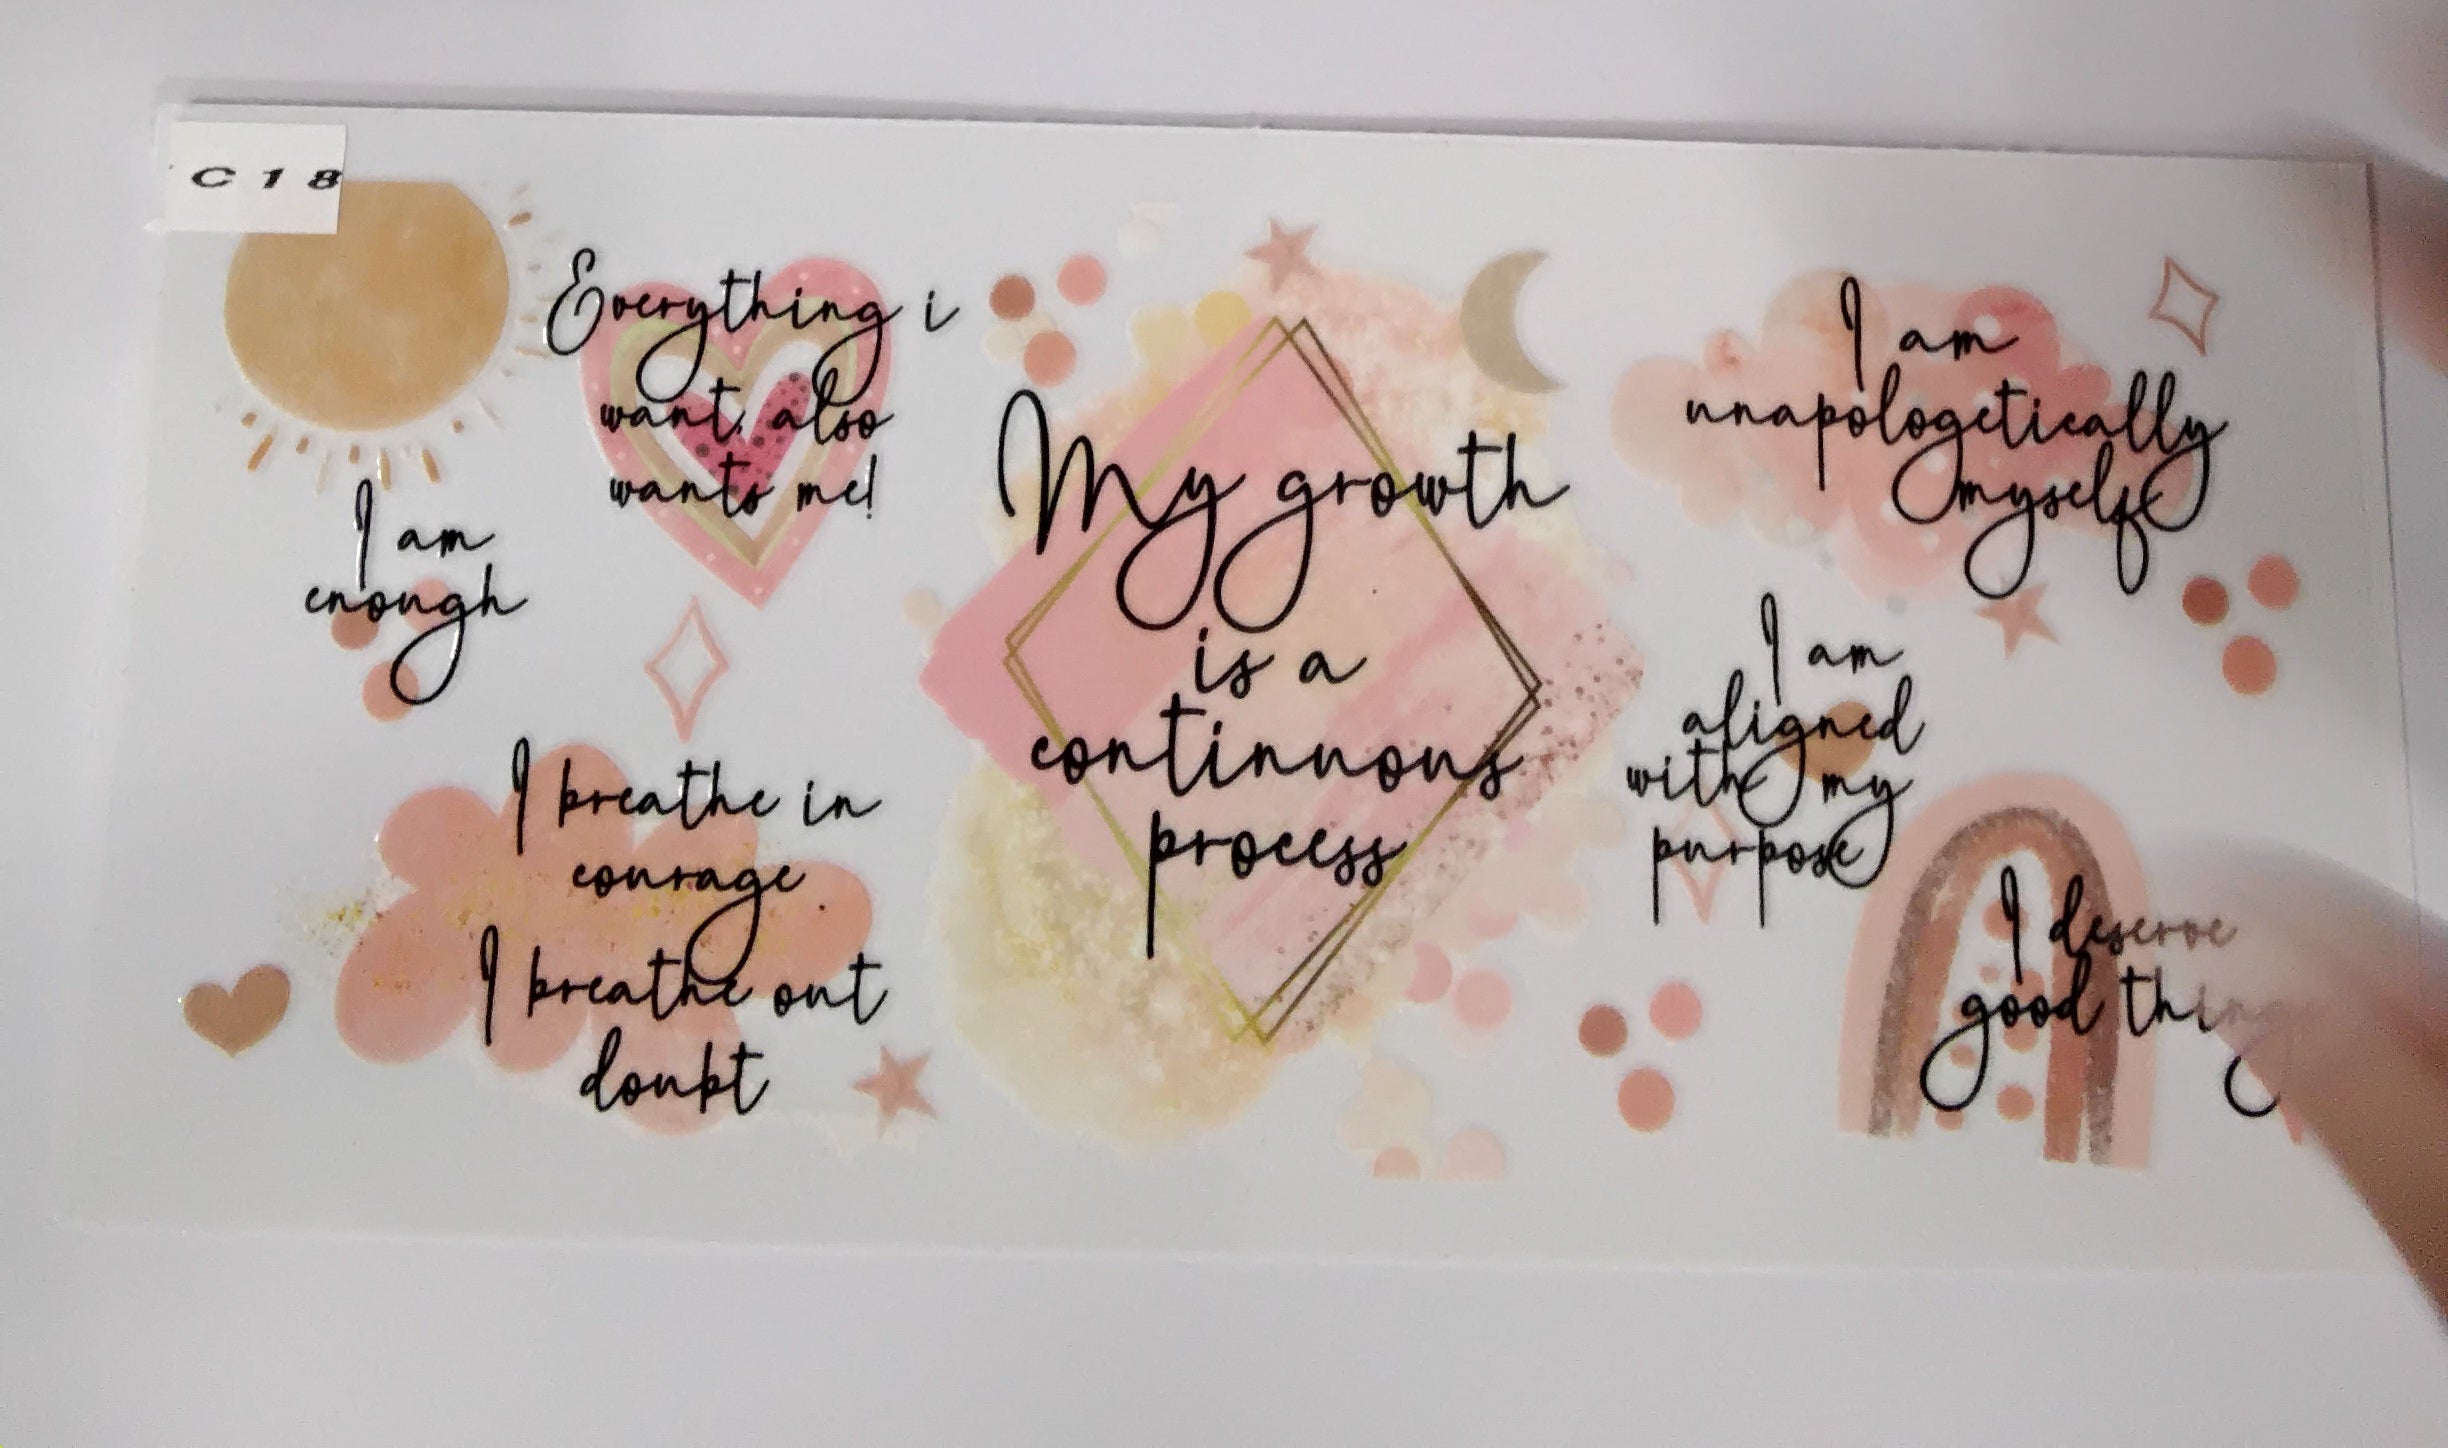 C18
Everything i
want also
wants me!
I am
enough
I breathe in
courage
I breathe out
doubt
My growth
is a
continuous
process
I am
unapologetically
myself
I am
aligned
with my
purpose
I deserve
good